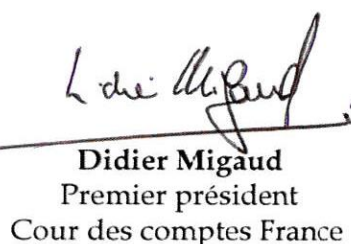 Didier Migaud
Didier Migaud
Premier président
Cour des comptes France